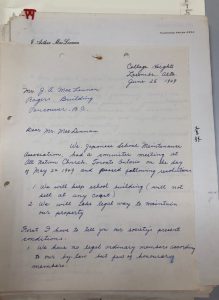 College Heights
Lacombe Alta.
June 25 1949
Mr. J. A. MacLennan
Rogers Building
Vancouver B.C.
Dear Mr. MacLennan
We, Japanese School Maintenance
Association, had a committee meeting at
United Church, Toronto Ontario on the day
of May 24 1949 and passed following conditions
1 We will keep school building (will not
sell at any cost)
2 We will take legal way to maintain
our property
First I have to tell you our society's present
conditions.
1 We have no legal ordinary members according
to our by-law but few of honourary
members.